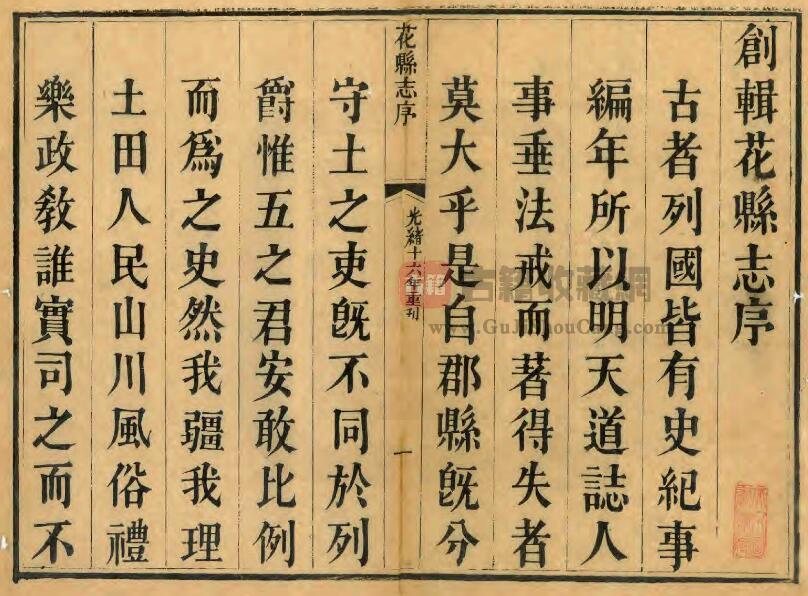 創輯花縣志序
古者列國皆有史紀事
編年所以明天道誌人
事垂法戒而著得失者
莫大乎是自郡縣旣分
花縣志序
光緖十六年重刊
一
守土之吏旣不同於列
爵惟五之君安敢比例
而爲之史然我疆我理
土田人民山川風俗禮
樂政敎誰實司之而不
古籍
古籍收藏網
www.GuJiShouCang.com